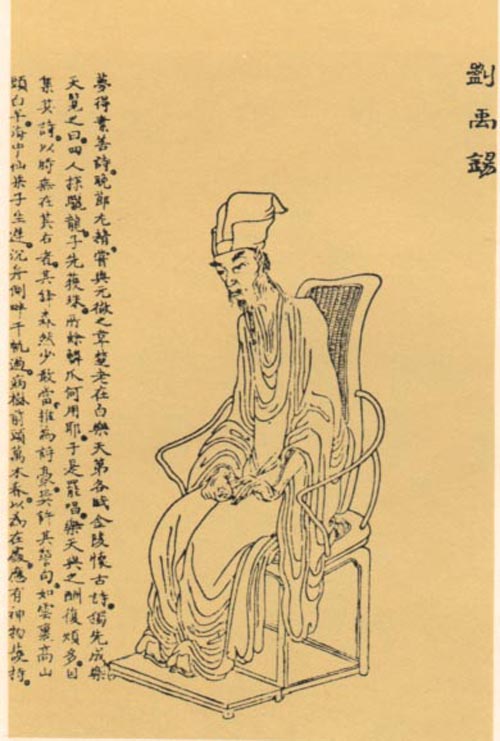 劉禹錫
夢得素善詩。晚節尤精。嘗與元微之韋楚老在白樂天第各賦金陵懷古詩。獨先成樂
天覽之曰。四人探驪龍。子先獲珠。所餘鱗爪何用耶。于是罷唱。樂天與之酬復頗多。因
集其詩。以時無在其右者。其鋒森然少敢當。推為詩豪。許其警句。如雪裏高山
頭白早。海中仙果子生遲。沉舟側畔千帆過。病樹前頭萬木春。以為在處。應有神物護持。